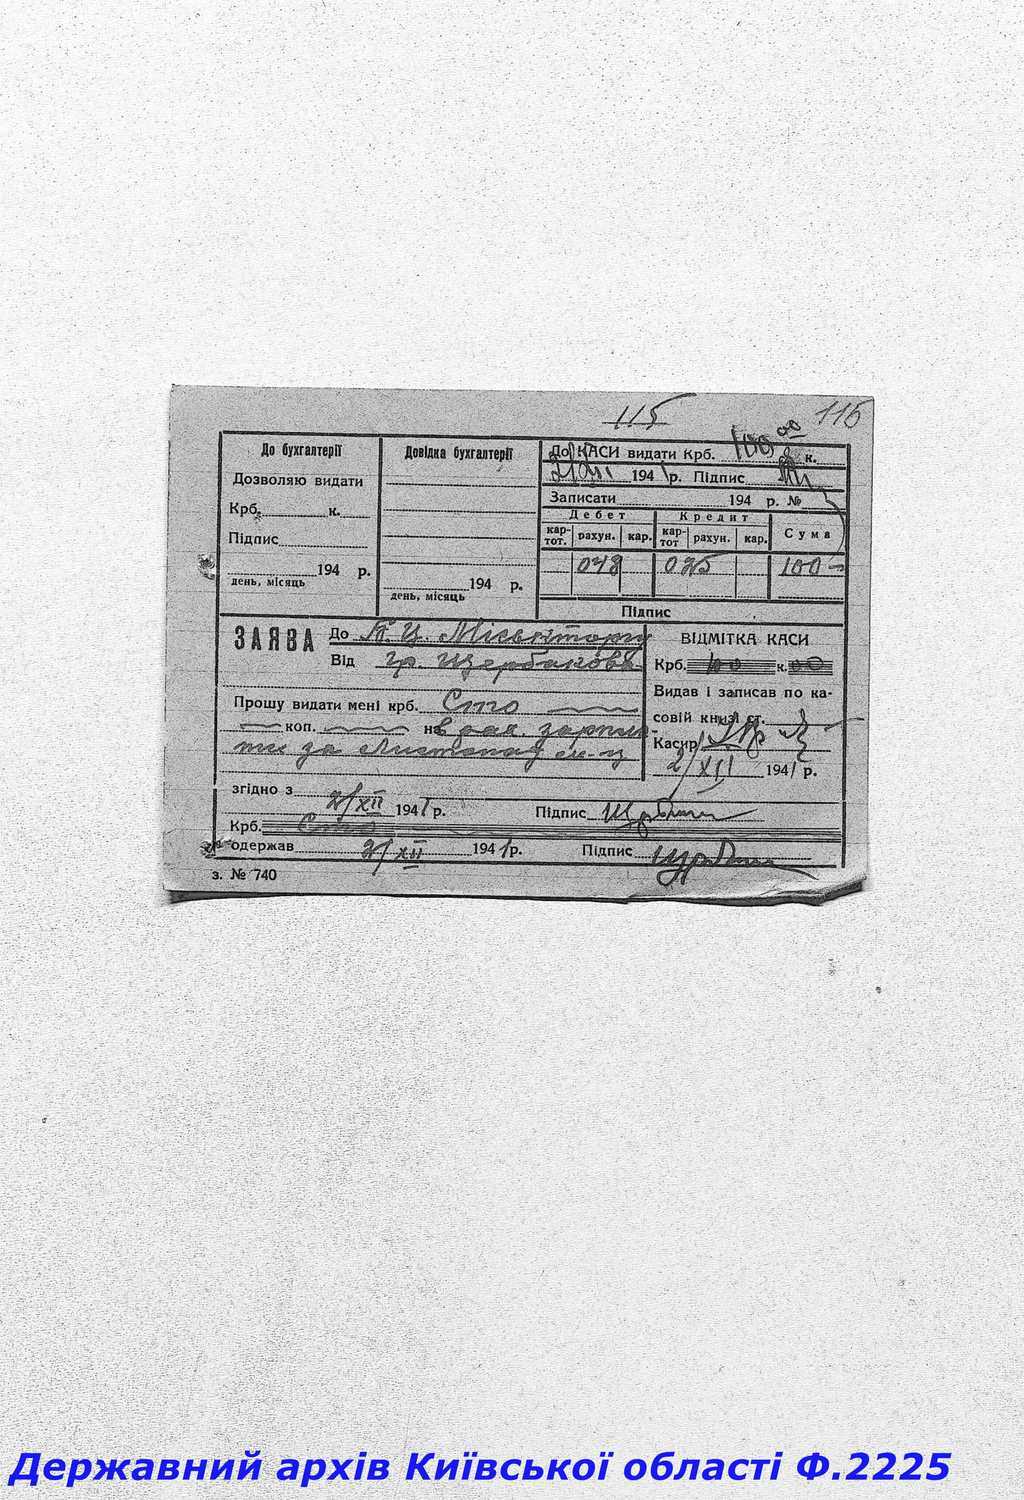 115 115
До бухгалтерії
Дозволяю видати
Крб. к.
Підпис
194 р.
день, місяць
Довідка бухгалтерії
194 р.
день, місяць
До КАСИ видати Крб. 100 00 к.
2/XII 1941 р. Підпис
Записати 194 р. №
Дебет Кредит Сума
кар-тот. рахун. кар. кар-тот рахун. кар.
048 025 100 –
Підпис
ЗАЯВА До Б. Ц. Міськторгу
Від гр. Щербакова
Прошу видати мені крб. Сто
коп. на в рах. зарпла-
ти за Листопад м-ц
ВІДМІТКА КАСИ
Крб. 100 к. 00
Видав і записав по ка-
совій книзі ст.
Касир
2/XII 1941 р.
згідно з
2/XII 1941 р. Підпис
Крб. Сто
одержав 2/XII 1941 р. Підпис
з. № 740
Державний архів Київської області Ф.2225